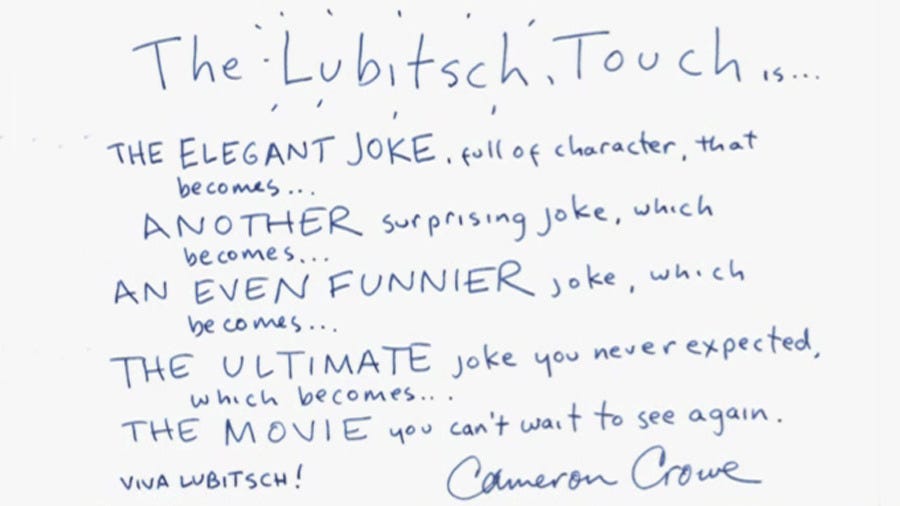 The Lubitsch Touch is...
THE ELEGANT JOKE, full of character, that
becomes...
ANOTHER surprising joke, which
becomes...
AN EVEN FUNNIER joke, which
becomes...
THE ULTIMATE joke you never expected,
which becomes...
THE MOVIE you can't wait to see again.
VIVA LUBITSCH! Cameron Crowe